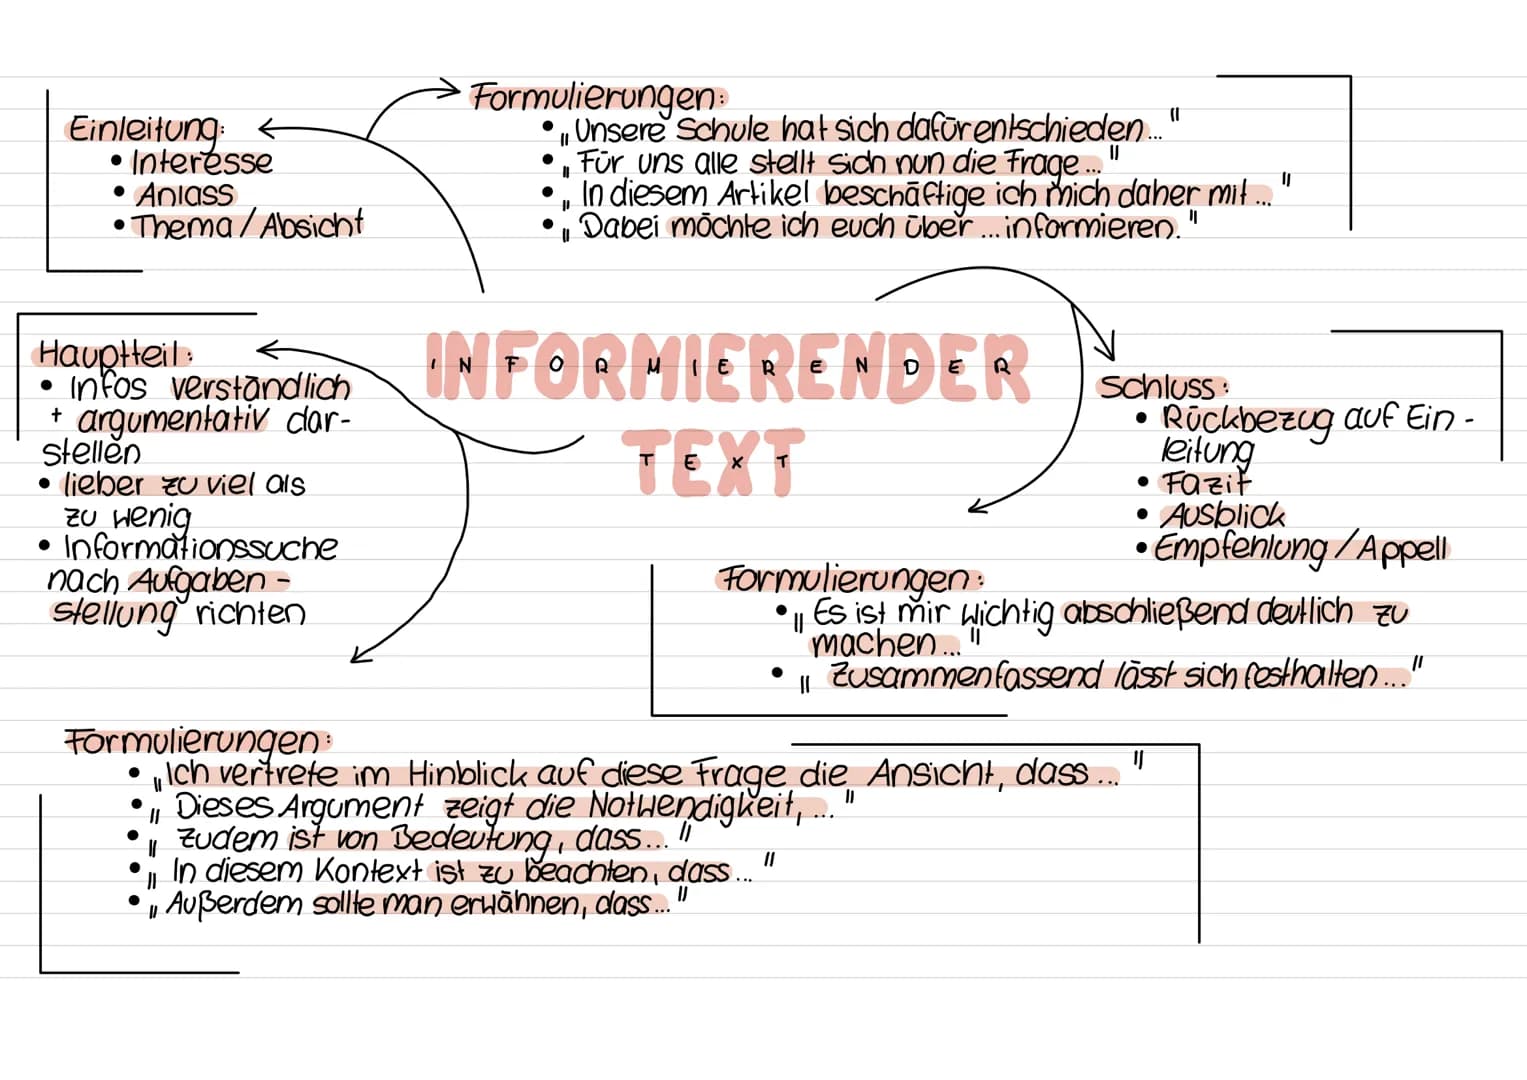 Einleitung:
• Interesse
• Anlass
• Thema / Absicht
Formulierungen:
• „Unsere Schule hat sich dafür entschieden..."
• „Für uns alle stellt sich nun die Frage..."
• „In diesem Artikel beschäftige ich mich daher mit..."
• „Dabei möchte ich euch über ... informieren."
INFORMIERENDER
TEXT
Hauptteil:
• Infos verständlich
+ argumentativ dar-
stellen
• lieber zu viel als
zu wenig
• Informationssuche
nach Aufgaben-
stellung richten
Schluss:
• Rückbezug auf Ein-
leitung
• Fazit
• Ausblick
• Empfehlung / Appell
Formulierungen:
• „Es ist mir wichtig abschließend deutlich zu
machen..."
• „Zusammenfassend lässt sich festhalten..."
Formulierungen:
• „Ich vertrete im Hinblick auf diese Frage die Ansicht, dass..."
• „Dieses Argument zeigt die Notwendigkeit, ..."
• „Zudem ist von Bedeutung, dass..."
• „In diesem Kontext ist zu beachten, dass..."
• „Außerdem sollte man erwähnen, dass..."